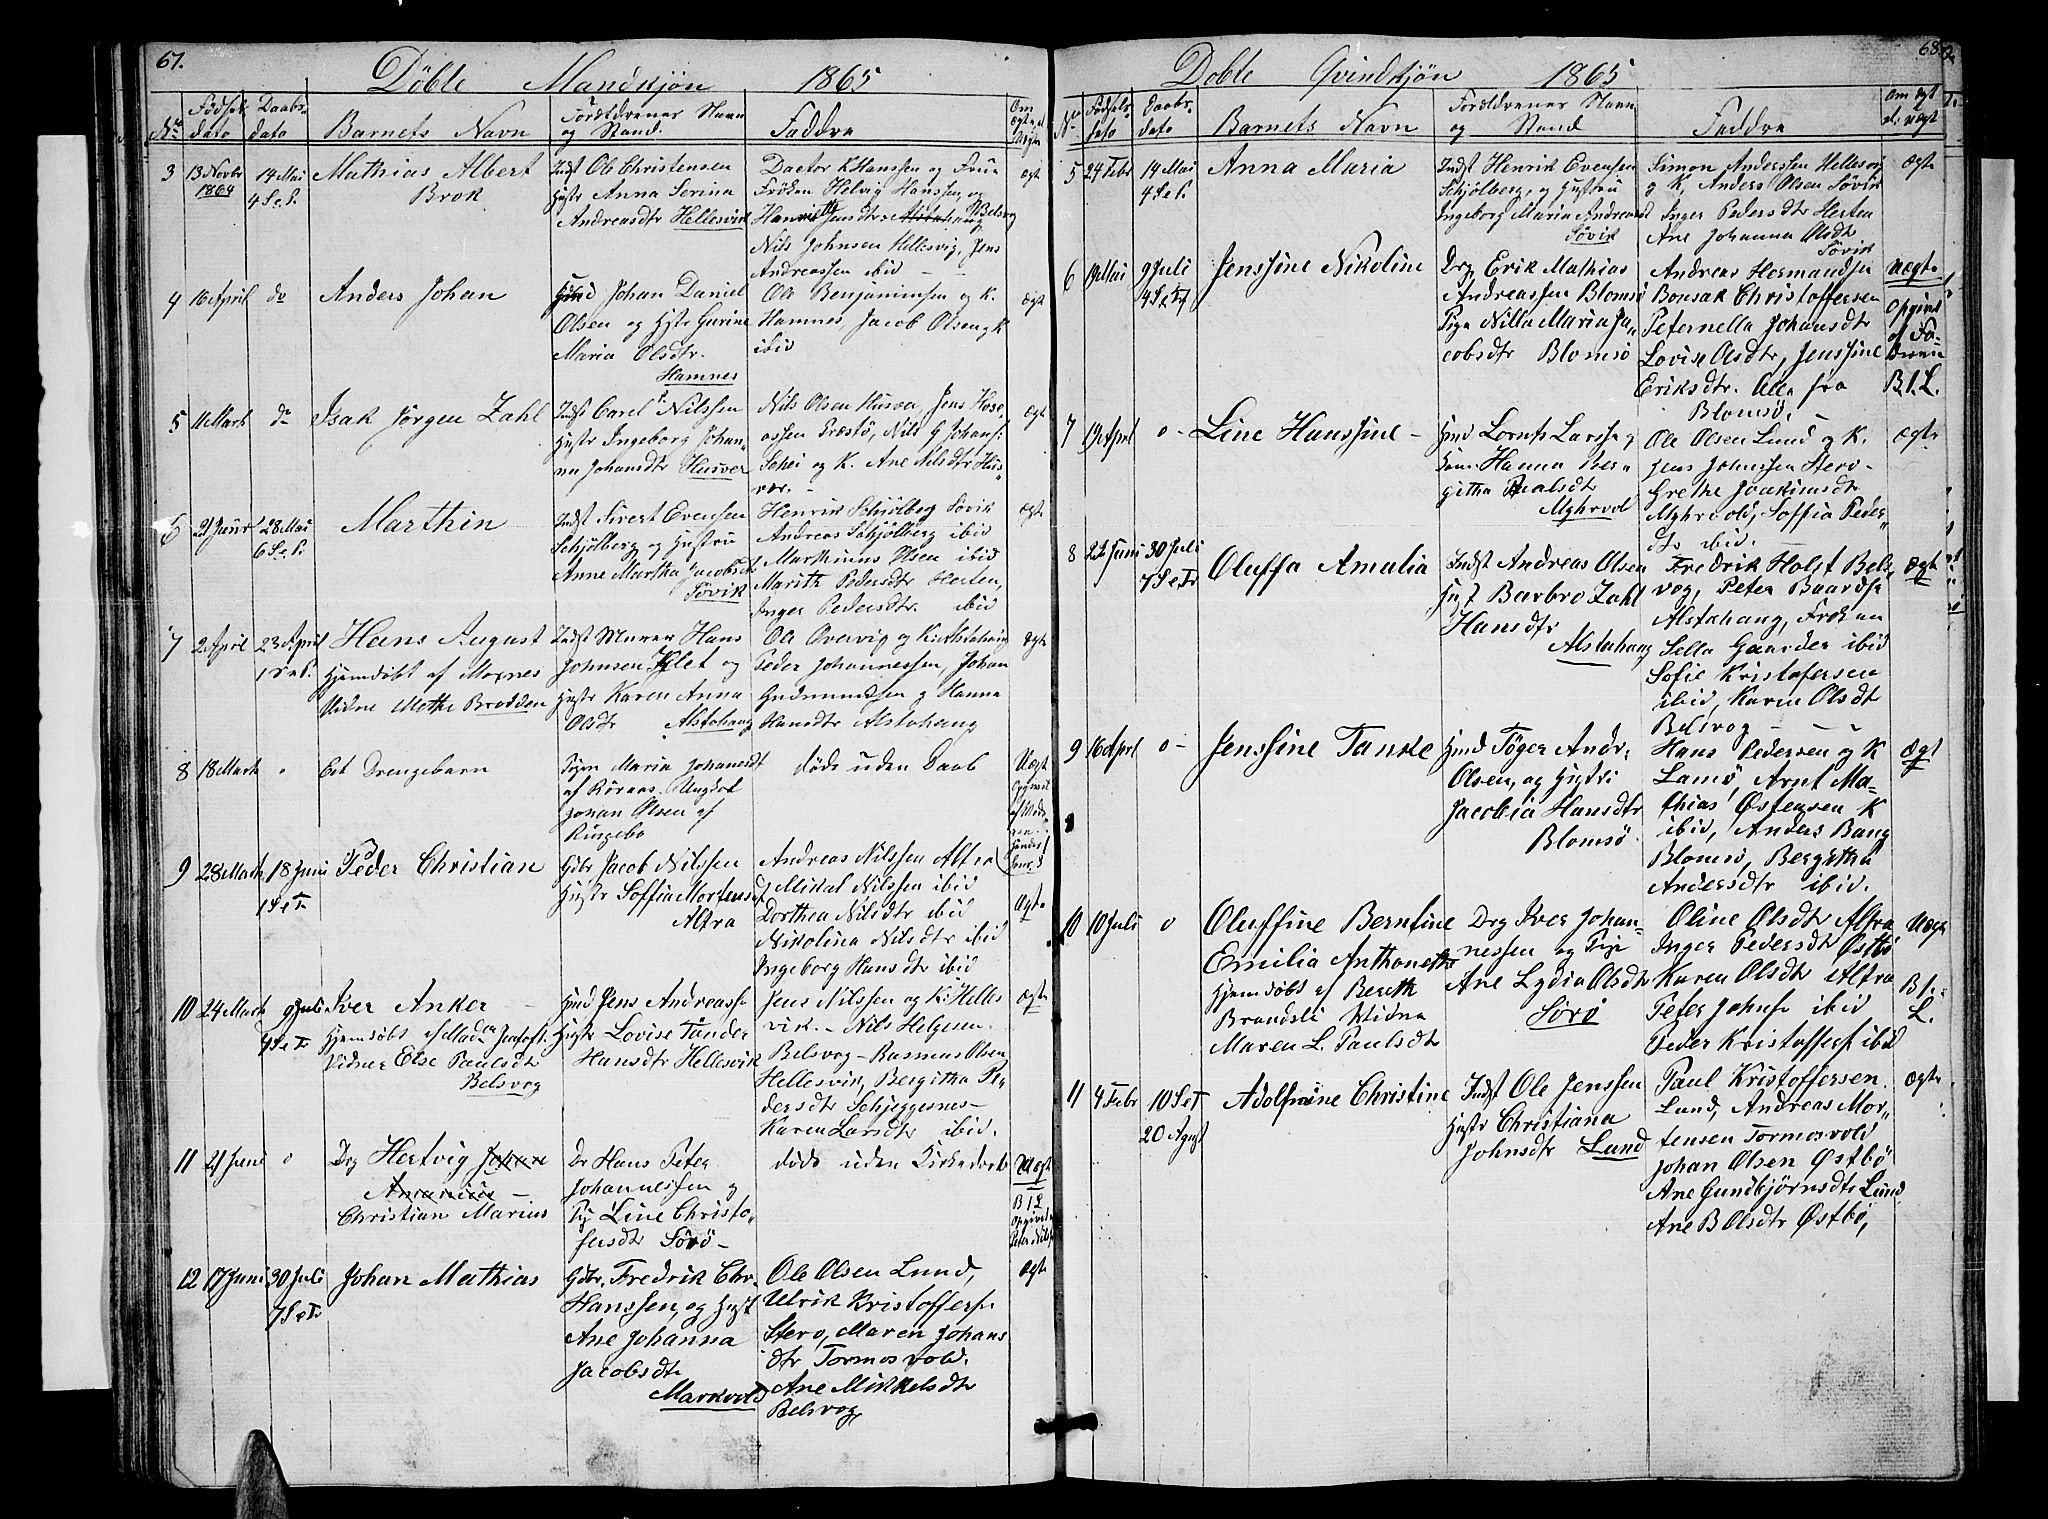 67.
Döbte Mandkjøn 1865
No
Fødsels
dato
Daabs
dato
Barnets Navn
Forældrenes Navn
og Stand.
Faddre
Om
Ægte el
Uægte
3
13 Novbr
1864
14 Mai
4 S. e. P.
Mathias Albert
Brok
Indst Ole Christensen
Hustr Anna Serina
Andreasdtr Hellesvik
Doctor K Hanssen og Frue
Frøken Helvig Hanssen, og
Jensdtr Belsvog
Nils Johnsen Hellesvig, Jens
Andreassen ibid –
ægt
4
16 April
do
Anders Johan
Johan Daniel
Olsen og Hustr Gurine
Maria Olsdtr.
Hamnes
Ole Benjaminsen og K.
Hamnes, Jacob Olsen og K
ibid
ægt
5
11 Marts
do
Isak Jørgen Zahl
Indst Carel P. Nilssen
Hustr Ingeborg Johan-
na Johansdtr Husvær
Nils Olsen Husvær, Jens Hose-
assen Præstø, Nils G Johans:
Schei og K. Ane Nilsdtr Hus-
vær. –
ægt
6
21 Januar
28 Mai
6 S. e. P.
Marthin
Indst Sivert Evensen
Schjølberg og Hustru
Anne Martha Jacobsdtr
Søvik
Henrik Schjølberg Søvik
Andreas Schjølberg ibid
Markinus Olsen ibid
Marith Pedersdtr Herten,
Inger Pedersdtr. ibid
ægt
7
2 April
23 April
1 S. e. P.
Hans August
Hjemdøbt af Moxnes
Vidne Mette Brodden
Indst Murer Hans
Johnsen Klet og
Hustr Karen Anna
Olsdtr Alstahaug
Ole Overvig og K. Alstahaug
Peder Johannessen, Johan
Gudmundsen og Hanna
Hansdtr Alstahaug
ægt
8
18 Marts
Et Drengebarn
Pigen Maria Johansdt
af Røraas. Ungkarl
Johan Olsen af
Ringebo
døde uden Daab
Uægt
9
28 Marts
18 Juni
1 S. e. T.
Peder Christian
Gdbr Jacob Nilssen
Hustr Soffia Mortensdt
Altra
Andreas Nilssen Altra
Mikal Nilssen ibid
Dorthea Nilsdtr ibid
Nikolina Nilsdtr ibid
Ingeborg Hansdtr ibid
Ægte
10
24 Marts
9 Juli
4 S e Tr
Iver Anker –
Hjemdøbt af
Vidner Else Paulsdtr
Belsvog
Hmd Jens Andreasse
Hustr Lovise Tander
Hansdtr Hellesvik
Jens Nilssen og K. Helles
vik. – Nils Helgesen.
Belsvog – Rasmus Olsen
Hellesvik, Bergitha Pe-
dersdtr Schjeggesnes –
Karen Larsdtr ibid.
ægte
11
21 Juni
0
Drg Hertvig
Christian Marius
Dr Hans Peter
Johannessen og
Pig Line Christo-
fersdtr Sörö –
døde uden Kirkedaab
Uægt
B 1 L
Opgivet
Peter Nilss
12
17 Juni
30 Juli
7 S e Tr
Johan Mathias
Gdbr. Fredrik Chr.
Hanssen, og Hust
Ane Johanna
Jacobsdtr
Markvold
Ole Olsen Lund,
Ulrik Kristofferse
Stero, Maren Johans
dtr Tormosvold.
Ane Mikkelsdtr
Belsvog,
ægte
68.
Döbte Qvindkjøn 1865
No
Fødsels
dato
Daabs
dato
Barnets Navn
Forældrenes Navn
og Stand
Faddre
Om ægt
el. uægt
5
24 Febr
14 Mai
4 S e P.
Anna Maria
Indst Henrik Evensen
Schjølberg, og Hustru
Ingeborg Maria Andreasd
Søvik
Simon Anderssen Hellesvig
og K, Anders Olsen Søvik
Inger Pedersdtr Herten
Ane Johanna Olsdt
Søvik
Ægte
6
19 Mai
9 Juli
4 S. e Tr
Jenssine Nikoline
Drg Erik Mathias
Andreassen Blomsö
Pige Nilla Maria Ja-
cobsdtr Blomsö
Andreas Hermandse
Bonsak Christoffersen
Peternella Johansdtr
Lovise Olsdtr, Jenssine
Eriksdtr. Alle fra
Blomsö. –
Uægte
Opgivet
af Fa-
deren
B. 1. L.
7
19 April
0 –
Line Hanssine –
Hmd Lornts Larsse og
Hanna Ber-
githa Palsdt
Myhrvol
Ole Olsen Lund og K.
Jens Johnssen Stero –
Grethe Joakimsdtr
Myhrvold, Soffia Peder-
dtr ibid.
Ægte
8
22 Juni
30 Juli
7 S e Tr
Oluffa Amalia
Indst Andreas Olsen
Hust Barbro Zahl
Hansdtr
Alstahaug
Fredrik Holst Bels-
vog, Peter Baardse
Alstahaug, Frøken
Sella Gaarder ibid
Sofie Kristofersen
ibid, Karen Olsdt
Belsvog –
Ægte
9
16 April
0 –
Jenssine Tanke
Hmd Töger Andr.
Olsen, og Hustri
Jacobia Hansdtr
Blomsö.
Hans Pedersen og K
Lamö, Arnt Ma-
thias Østensen K
ibid, Anders Bang
Blomsö, Bergitha
Andersdtr ibid.
Ægt
10
10 Juli
0
Oluffine Berntine
Emilia Anthonette
Hjemdøbt af Bereth
Brandsli Vidne
Maren L. Paulsdtr
Drg Iver Johan-
nessen og Pige
Ane Lydia Olsdtr
Sörö
Oline Olsdtr Altra
Inger Pedersdtr Østbö
Karen Olsdtr Altra
Peter Johnse ibid
Peder Kristofferse ibid
Uægt
B 1.
L.
11
4 Febr
10 S e T
20 Agust
Adolfine Christine
Indst Ole Jenssen
Hustr Christiana
Johnsdtr Lund
Paul Kristoffersen.
Lund, Andreas Mor-
tensen Tormosvold
Johan Olsen Østbö
Ane Gundbjörnsdtr Lund
Ane B Olsdtr Østbö,
Ægte